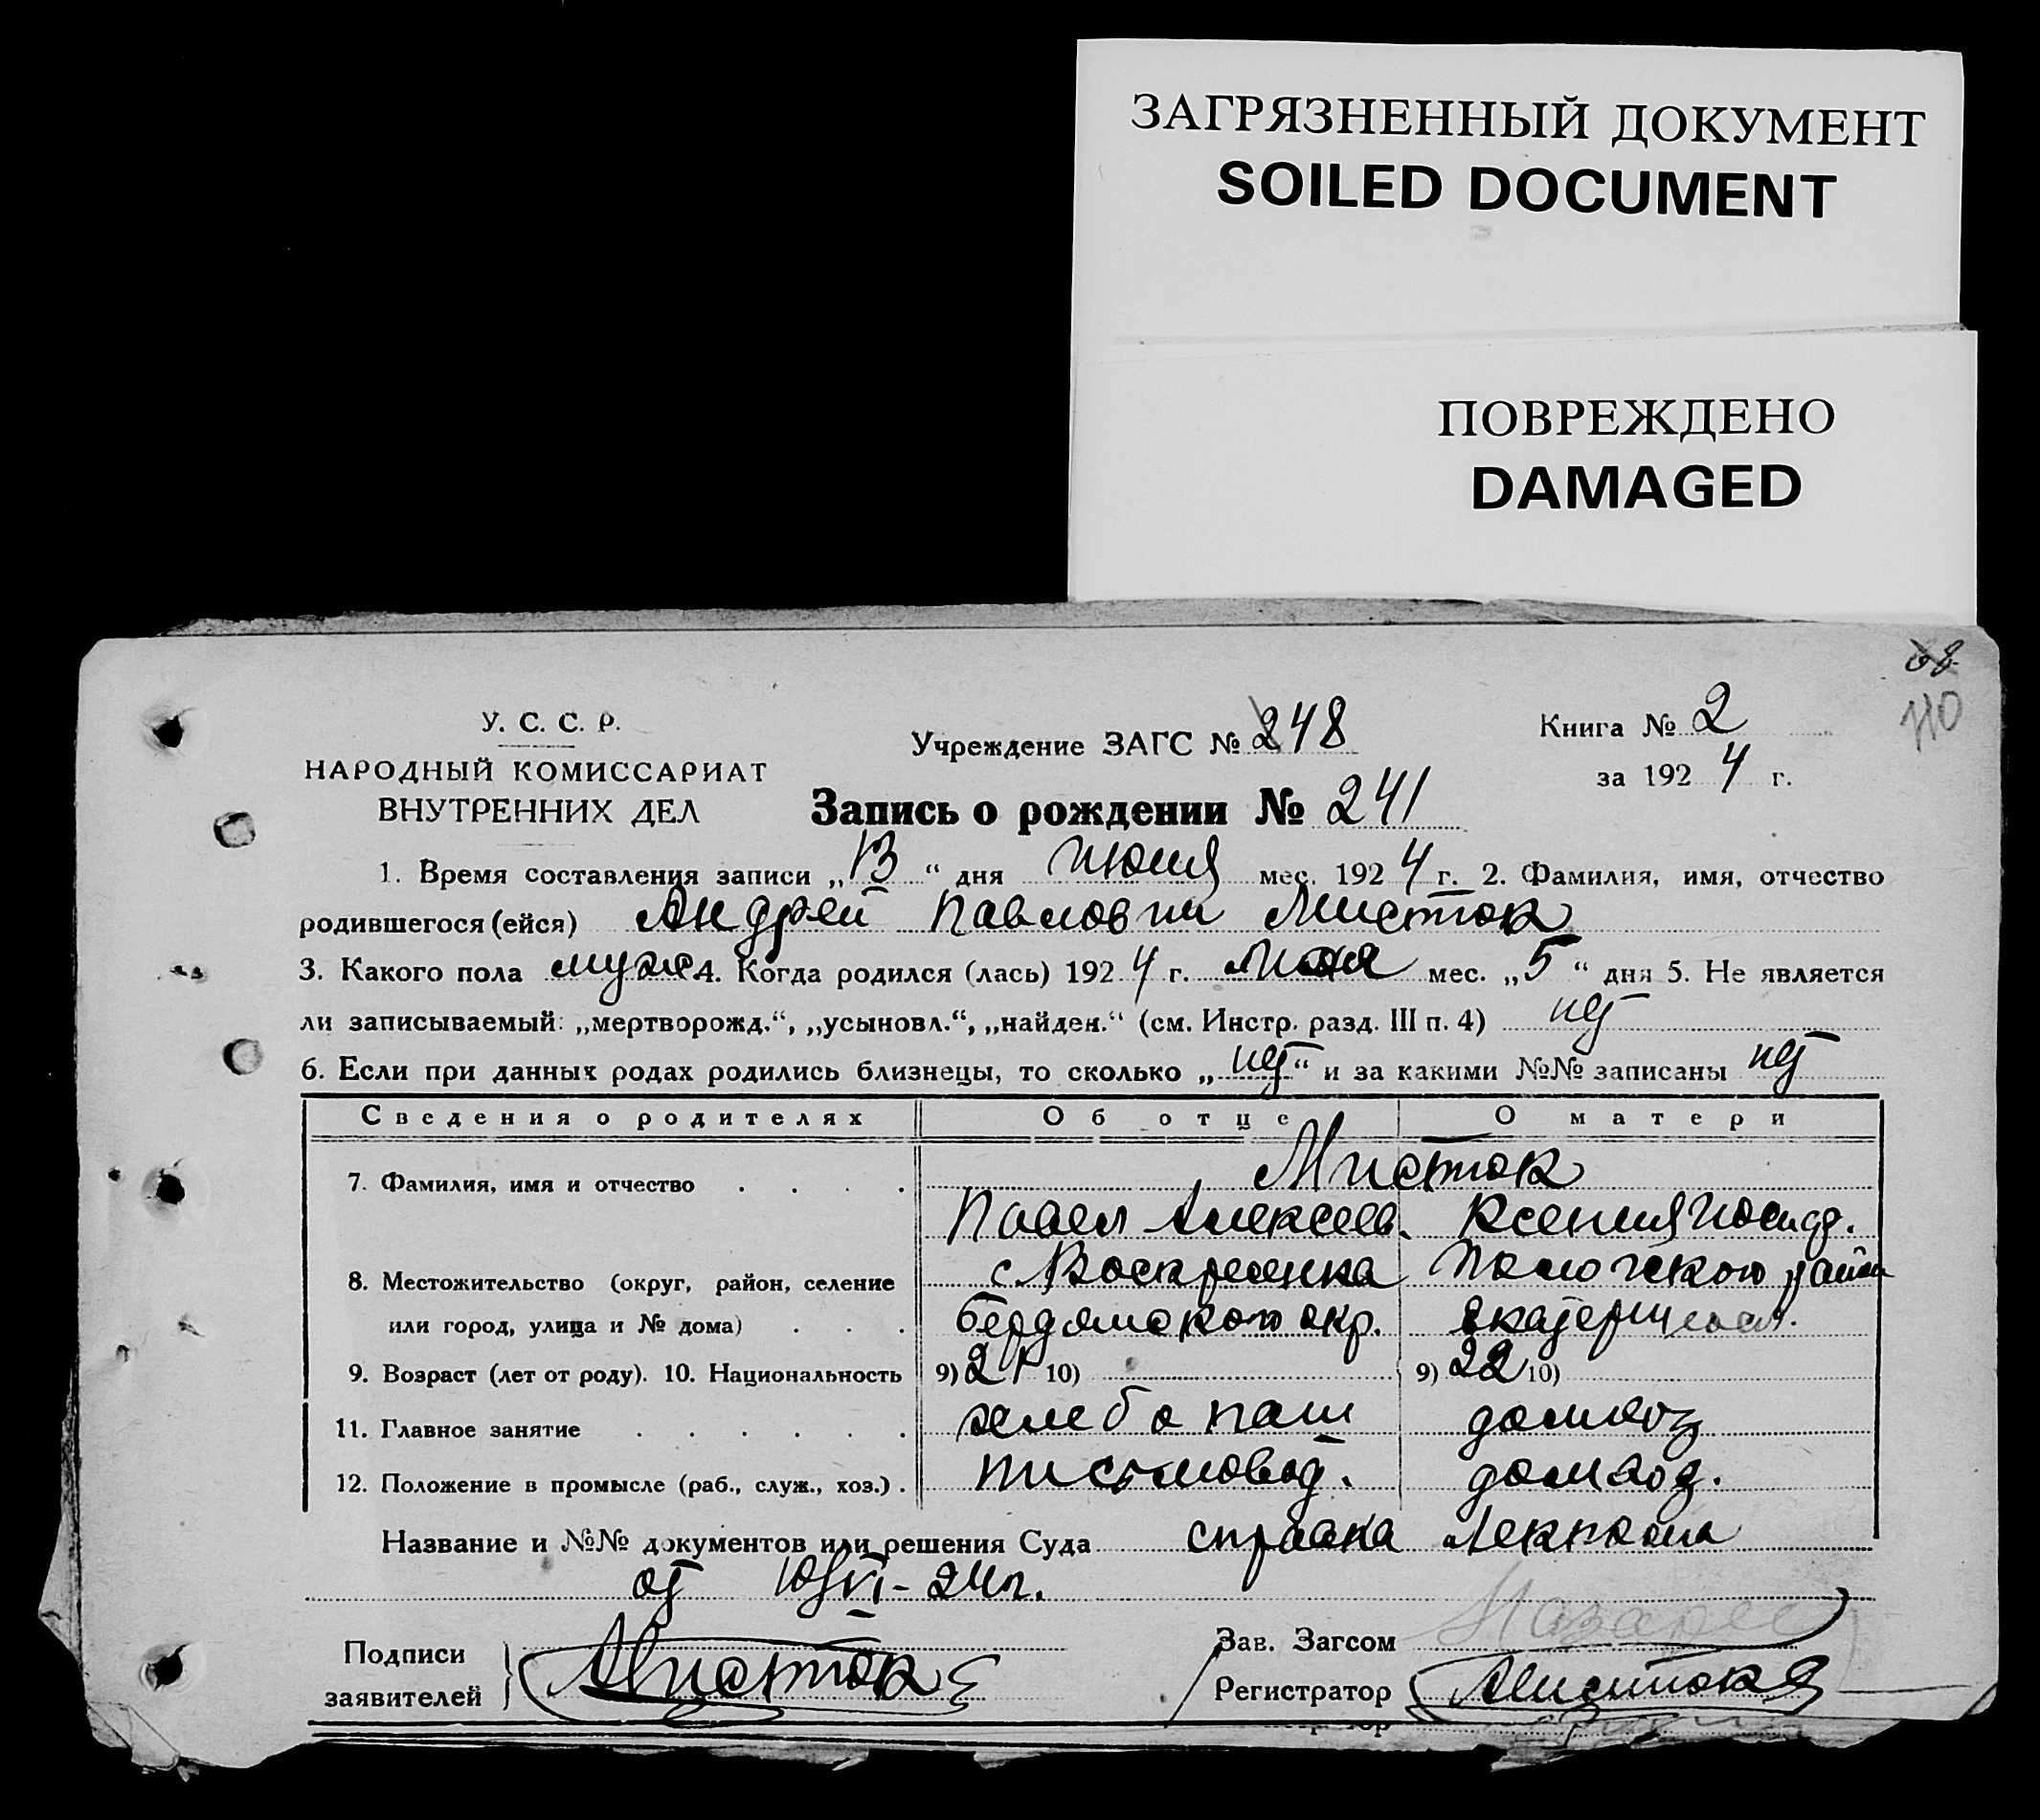 ЗАГРЯЗНЕННЫЙ ДОКУМЕНТ
SOILED DOCUMENT
ПОВРЕЖДЕНО
DAMAGED
68
110
У. С. С. Р.
НАРОДНЫЙ КОМИССАРИАТ
ВНУТРЕННИХ ДЕЛ
Учреждение ЗАГС № 248
Книга № 2
за 1924 г.
Запись о рождении № 241
1. Время составления записи „13“ дня июня мес. 1924 г. 2. Фамилия, имя, отчество
родившегося (ейся) Андрей Павлович Мисток
3. Какого пола муж 4. Когда родился (лась) 1924 г. мес. „5“ дня 5. Не является
ли записываемый: „мертворожд.“, „усыновл.“, „найден.“ (см. Инстр. разд. III п. 4) нет
6. Если при данных родах родились близнецы, то сколько „нет“ и за какими №№ записаны нет
Сведения о родителях Об отце О матери
7. Фамилия, имя и отчество Мисток
Павел Алексеев. Ксения
8. Местожительство (округ, район, селение с. Воскресенка Пологского района
или город, улица и № дома) Бердянского окр. Екатериносл.
9. Возраст (лет от роду). 10. Национальность 9) 21 10) 9) 22 10)
11. Главное занятие хлебопаш домхоз
12. Положение в промысле (раб., служ., хоз.) письмовод. домхоз.
Название и №№ документов или решения Суда справка
от 10/VI-24 г.
Подписи
заявителей Мисток
Зав. Загсом
Регистратор Мисток